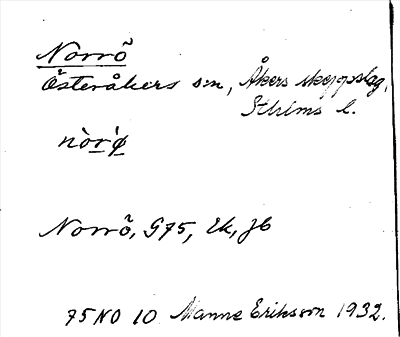 Norrö
Österåkers sn, Åkers skeppslag,
Sthlms l.
nòrǿ
Norrö, G75, Ek, jb
75 NO 10 Manne Eriksson 1932.